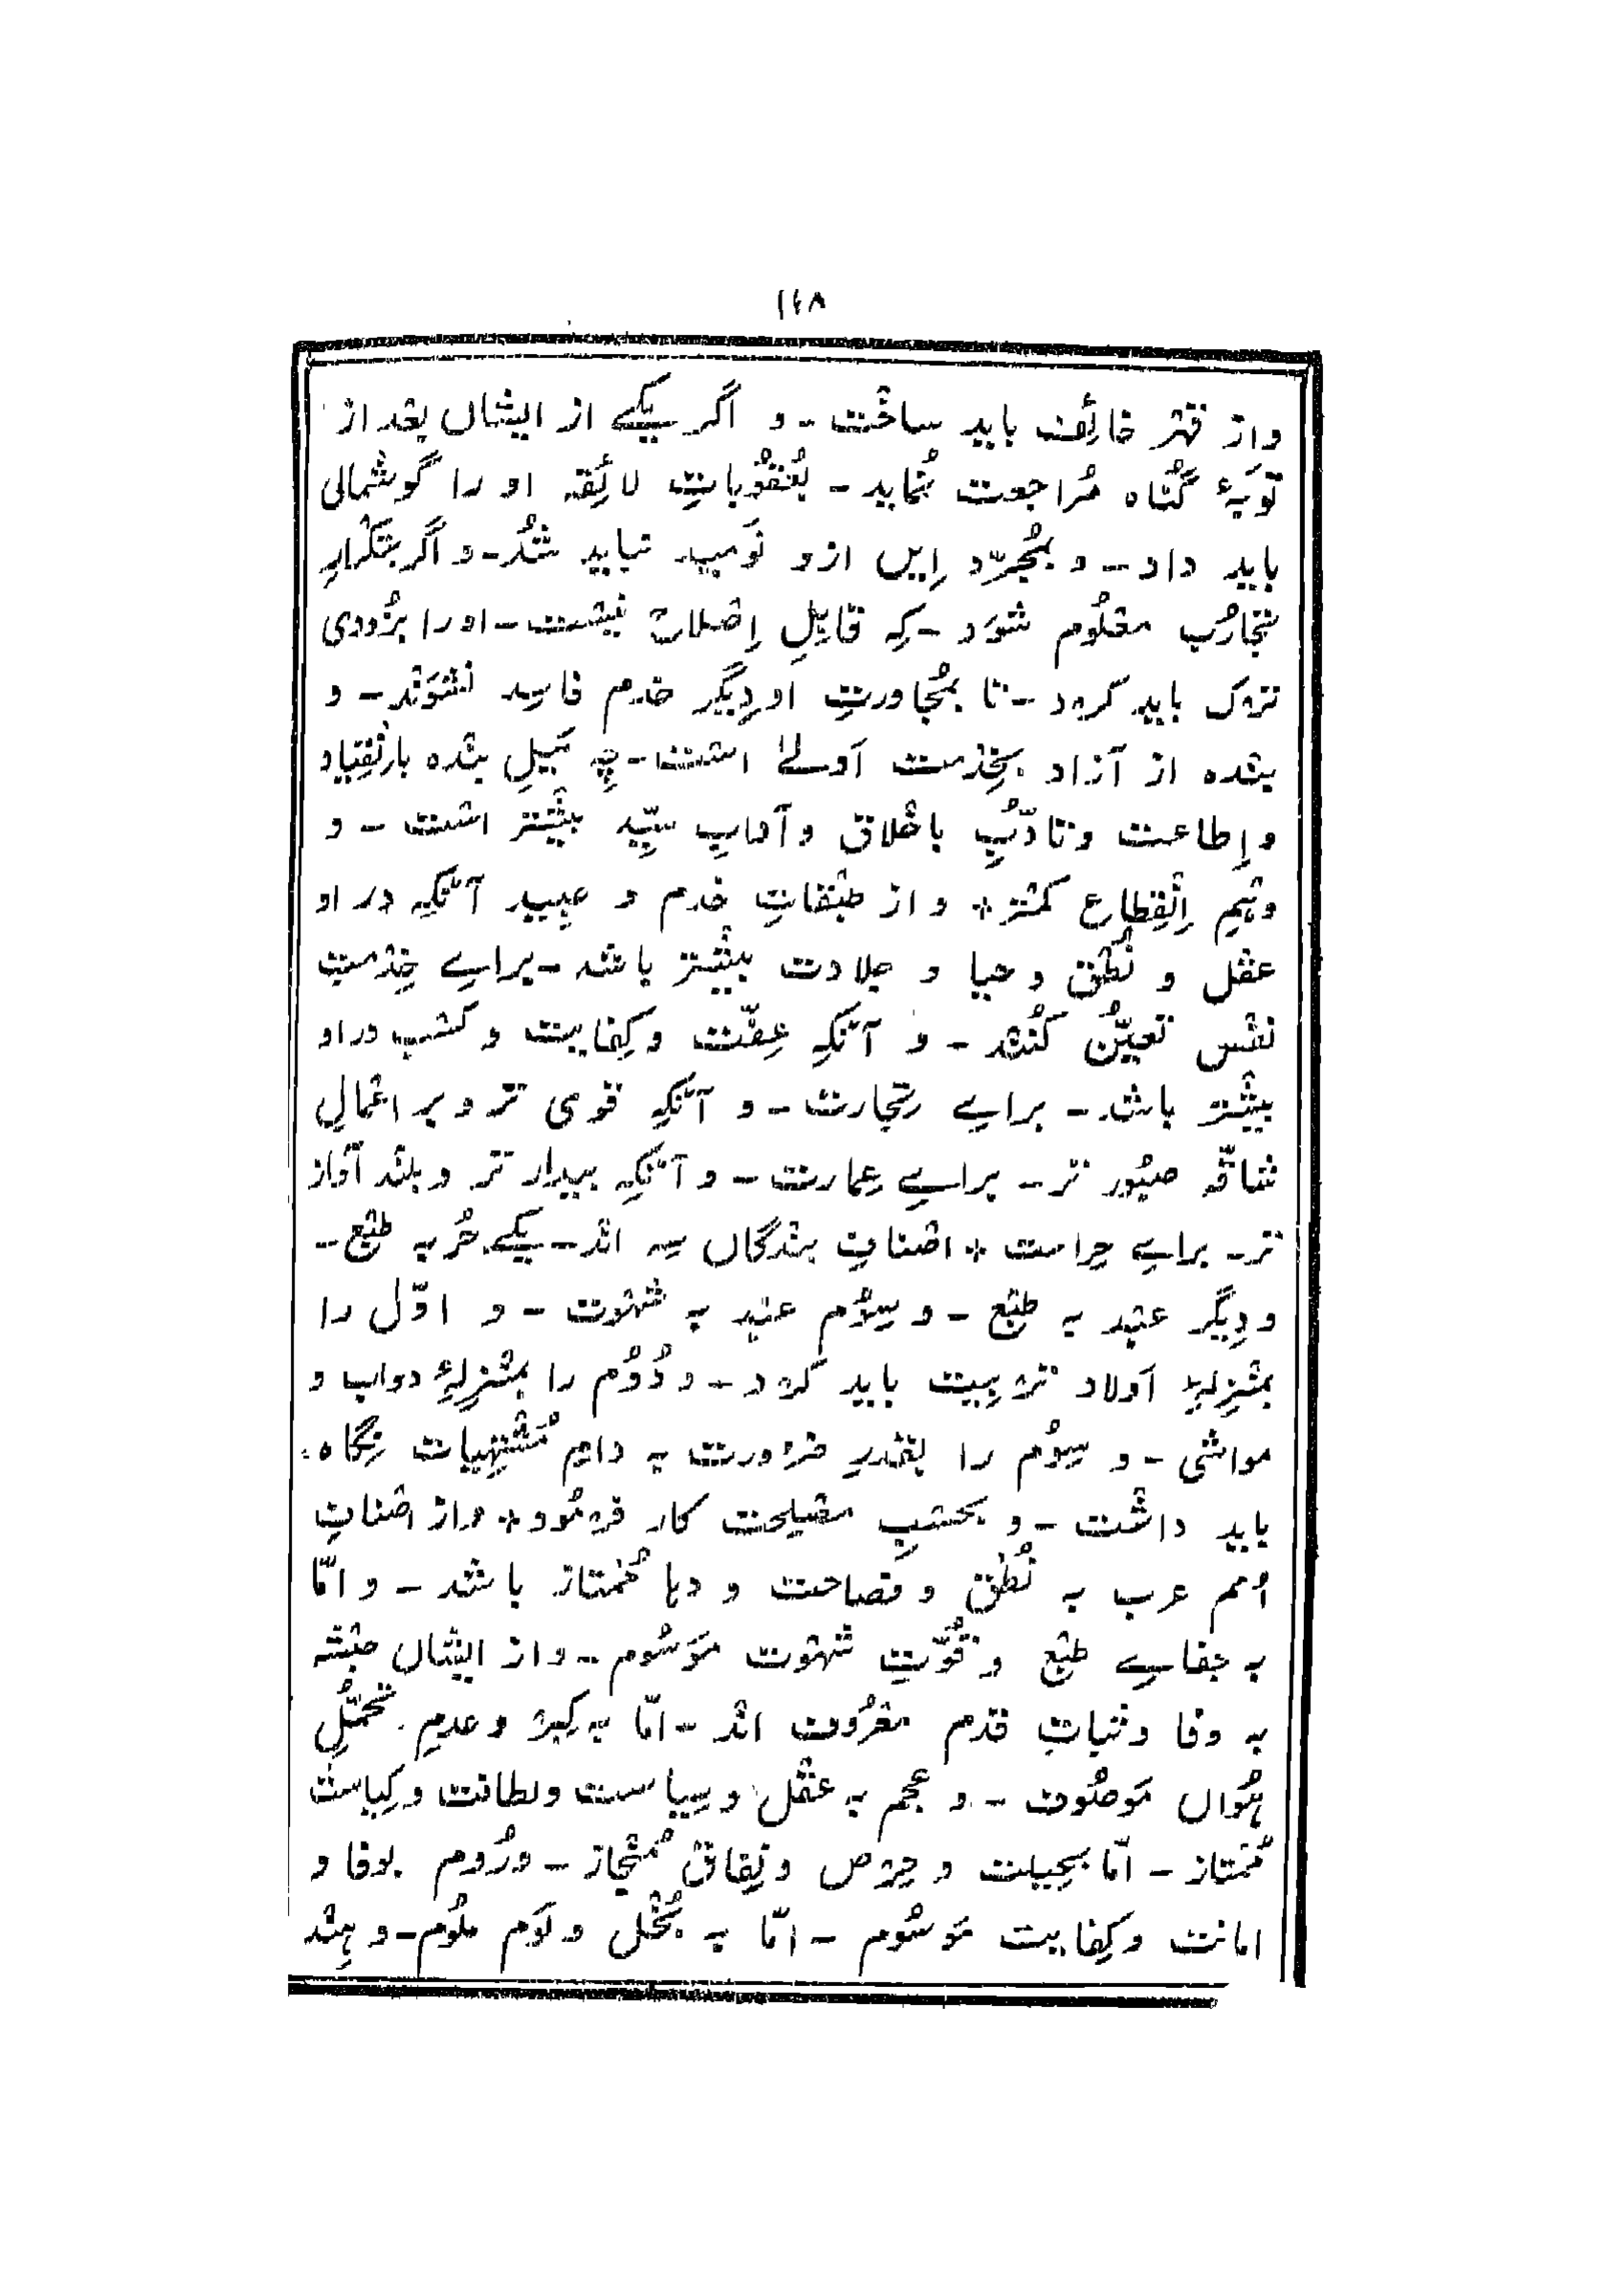 ۱۴۸
واز قهر خائِف باید ساخت - و اگر یکے از ایشاں بعد از
توبۂ گُناه مُراجعت نُماید - بعُقُوباتِ لائِقه او را گوشمالی
باید داد - و بمُجرّد اِیں ازو نَومید نباید شُد - و اگر بتکرارِ
تجارُب معلُوم شوَد - کِه قابِلِ اِصلاح نیست - او را بزُودی
ترک باید کرد - تا بمُجاورتِ او دِیگر خدم فاسِد نشوَند - و
بنده از آزاد بخِدمت اَولےٰ است - چِه مَیلِ بنده باِنقِیاد
و اِطاعت و تادّبِ باخلاق و آدابِ سیّد بیشتر است - و
وہمِ اِنقِطاع کمتر * و از طبقاتِ خدم و عبِید آنکِه در او
عقل و نُطق و حیا و جلادت بیشتر باشد - براے خِدمتِ
نفس تعیُّن کُنند - و آنکِه عِفّت و کِفایت و کسب در او
بیشتر باشد - براے تِجارت - و آنکِه قوی تر و بر اعمالِ
شاقّه صبُور تر - براے عِمارت - و آنکِه بیدار تر و بلند آواز
تر - براے حِراست * اصنافِ بندگاں سِه اند - یکے حُر به طبع -
و دِیگر عبد به طبع - و سِوُم عبد به شہوت - و اوّل را
بمنزِلۂ اَولاد تربیت باید کرد - و دُوُم را بمنزِلۂ دواب و
مواشی - و سِوُم را بقدرِ ضرورت به دامِ مُشتہِیات نِگاه
باید داشت - و بحسبِ مصلِحت کار فرمُود * و از اصنافِ
اُمم عرب به نُطق و فصاحت و دہا مُمتاز باشد - و امّا
به جفاے طبع و قُوّتِ شہوت مَوسُوم - و از ایشاں حبشه
به وفا و ثباتِ قدم معرُوف اند - امّا به کِبر و عدمِ تحمُّلِ
ہَواں مَوصُوف - و عجم به عقل و سِیاست و لطافت و کِیاست
مُمتاز - امّا بحِیلت و حِرص و نِفاق مُنحاز - و رُوم بوفا و
امانت و کِفایت مَوسُوم - امّا به بُخل و لَوم ملُوم - و ہِند